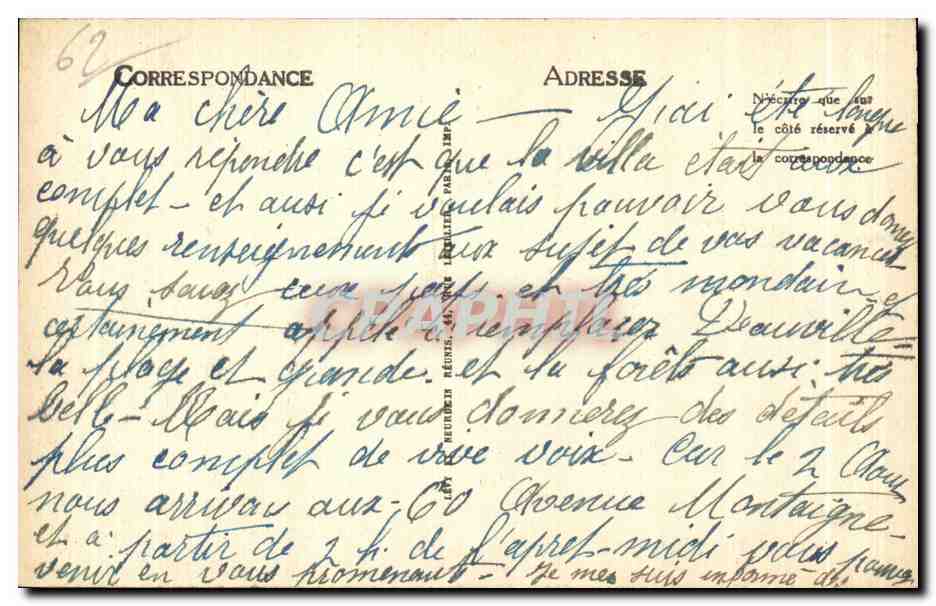 62
CORRESPONDANCE
ADRESSE
N'écrire que sur
le côté réservé à
la correspondance
Ma chère Amie — J'iai été longue
à vous répondre c'est que la villa était aux
complet – et ausi je voulais pouvoir vous donner
quelques renseignement aux sujet de vos vacances
Vous savez aux et très mondain et
certainement appelé à remplacer Deauville –
la plage et grande – et la forêts ausi très
belle – Mais je vous donnerez des détails
plus complet de vive voix – Car le 2 Aout
nous arrivons aux – 60 Avenue Montaigne –
et à partir de 2 h. de l'apret-midi vous pouvez
venir en vous promenant – Je me suis informé des
LÉVY & NEURDEIN RÉUNIS, 44, RUE LETELLIER, PARIS IMP.
CPAPHIL